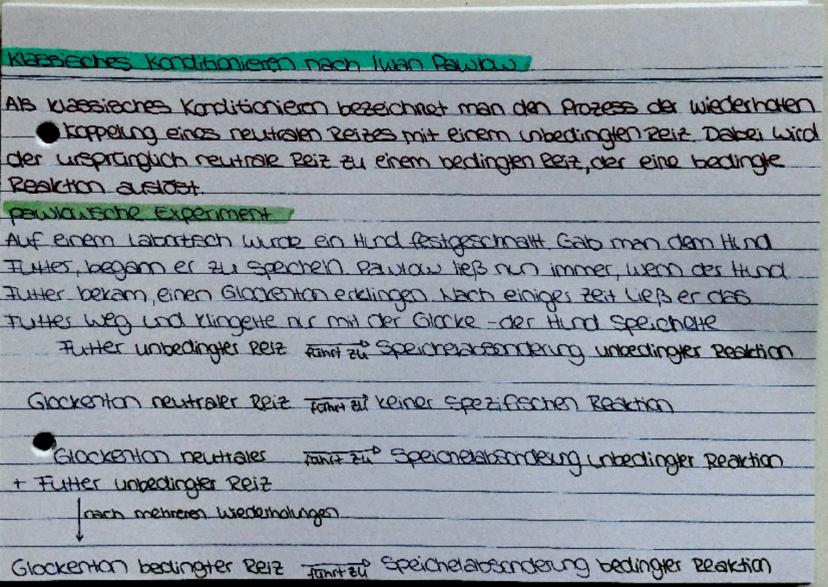 Klassisches Konditionieren nach Iwan Pawlow
Als klassisches Konditionieren bezeichnet man den Prozess der wiederholten
Koppelung eines neutralen Reizes mit einem unbedingten Reiz. Dabei wird
der ursprünglich neutrale Reiz zu einem bedingten Reiz, der eine bedingte
Reaktion auslöst.
pawlowsche Experiment
Auf einem Labortisch wurde ein Hund festgeschnallt. Gab man dem Hund
Futter, begann er zu speicheln. Pawlow ließ nun immer, wenn der Hund
Futter bekam, einen Glockenton erklingen. Nach einiger Zeit ließ er das
Futter weg und klingelte nur mit der Glocke - der Hund speichelte
Futter unbedingter Reiz führt zu Speichelabsonderung unbedingter Reaktion
Glockenton neutraler Reiz führt zu keiner spezifischen Reaktion
Glockenton neutraler führt zu Speichelabsonderung unbedingter Reaktion
+ Futter unbedingter Reiz
↓ nach mehreren Wiederholungen
Glockenton bedingter Reiz führt zu Speichelabsonderung bedingter Reaktion